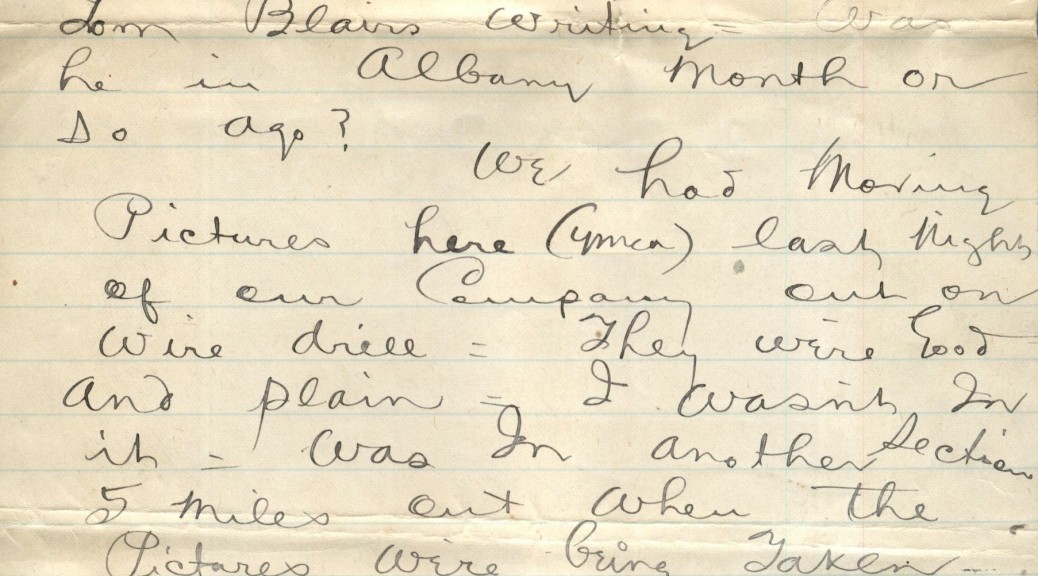 Tom Blairs writing = Was
he in Albany Month or
So ago?
We had Moving
Pictures here (ymca) last Night
of our Company out on
Wire drill = They were Good
And plain = I wasnt In
it = Was In another Section
5 miles out When the
Pictures were being Taken